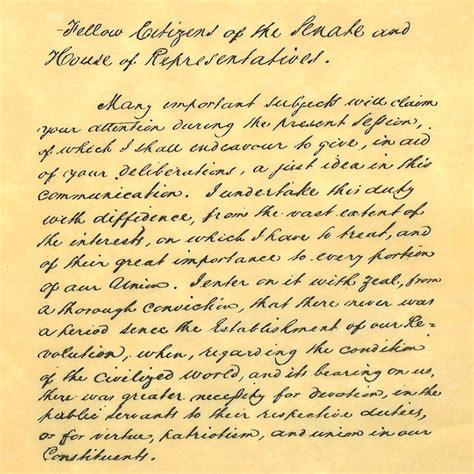 Fellow Citizens of the Senate and
House of Representatives.
Many important subjects will claim
your attention during the present Session,
of which I shall endeavour to give, in aid
of your deliberations, a just idea in this
communication. I undertake this duty
with diffidence, from the vast extent of
the interests, on which I have to treat, and
of their great importance to every portion
of our Union. I enter on it with zeal, from
a thorough conviction, that there never was
a period since the Establishment of our Re-
volution, when, regarding the condition
of the Civilized World, and its bearing on us,
there was greater necessity for devotion, in the
public servants to their respective duties,
or for virtue, patriotism, and union in our
Constituents.